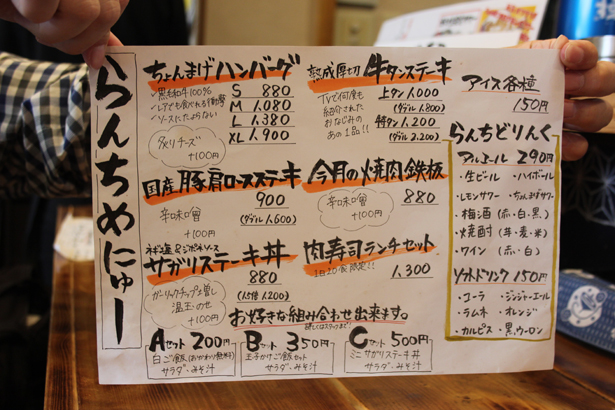 らんちめにゅー
ちょんまげハンバーグ
✓黒毛和牛100%
✓レアでも食べれる衝撃
✓ソースにたよらない
S 880
M 1,080
L 1,380
XL 1,900
炙りチーズ
+100円
熟成厚切 牛タンステーキ
TVで何度も
紹介された
おなじみの
あの1品!!
上タン 1,000
(ダブル 1,800)
特タン 1,200
(ダブル 2,200)
国産豚肩ロースステーキ
辛味噌
+100円
900
(ダブル 1,600)
今月の焼肉鉄板
辛口味噌
+100円
880
ネギ塩&ジポネソース
サガリステーキ丼
880
(1.5倍 1,200)
ガーリックチップ増し
温玉のせ
+100円
肉寿司ランチセット
1日20食限定!!
1,300
お好きな組み合わせ出来ます。
Aセット 200円
白ご飯(おかわり無料)
サラダ・みそ汁
Bセット 350円
玉子かけご飯セット
サラダ・みそ汁
Cセット 500円
ミニサガリステーキ丼
サラダ・みそ汁
アイス各種
150円
らんちどりんく
アルコール 290円
・生ビール ・ハイボール
・レモンサワー ・ちゃんまげサワー
・梅酒(赤・白・黒)
・焼酎(芋・麦・米)
・ワイン (赤・白)
ソフトドリンク 150円
・コーラ ・ジンジャーエール
・ラムネ ・オレンジ
・カルピス ・黒ウーロン